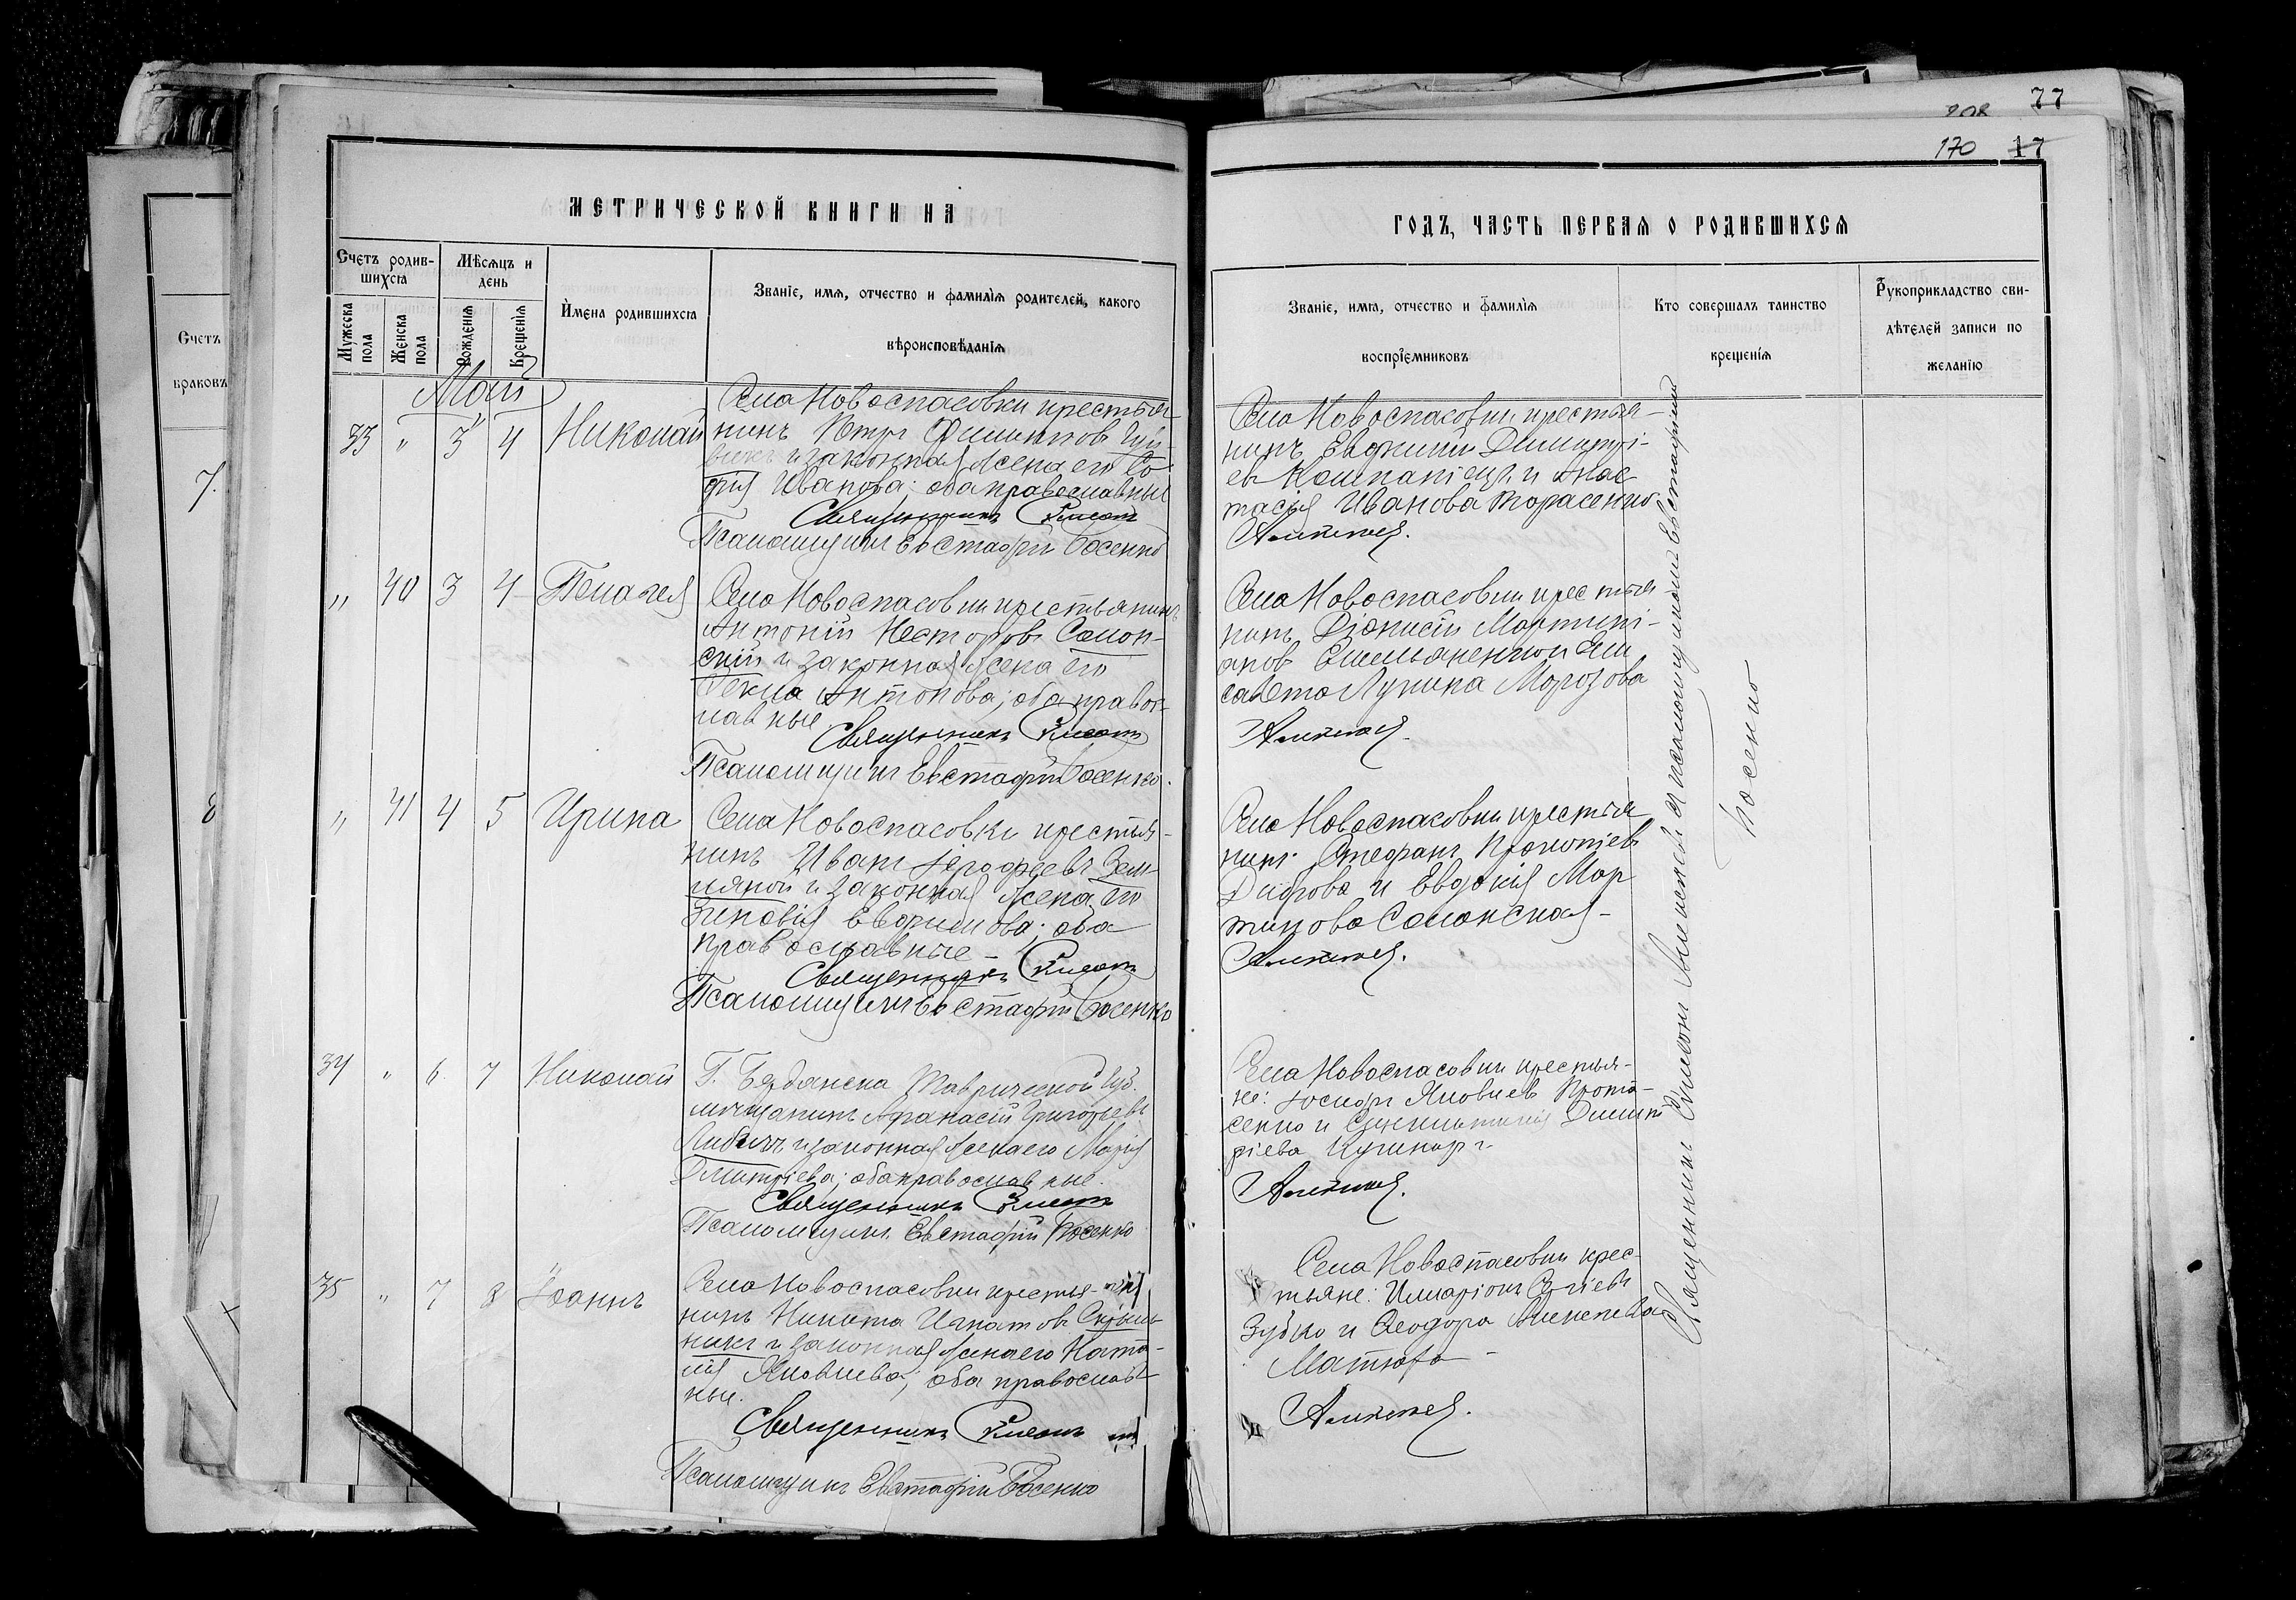 77
208
170 17
МЕТРИЧЕСКОЙ КНИГИ НА
ГОДЪ, ЧАСТЬ ПЕРВАЯ О РОДИВШИХСЯ
Счетъ родив-
шихся
Мѣсяцъ и
день
Мужеска пола
Женска пола
Рожденія
Крещенія
Имена родившихся
Званіе, имя, отчество и фамилія родителей, какого
вѣроисповѣданія
Званіе, имя, отчество и фамилія
воспріемниковъ
Кто совершалъ таинство
крещенія
Рукоприкладство сви-
дѣтелей записи по
желанію
Счетъ
браковъ
7.
8
Май
33 " 3 4 Николай
Села Новоспасовки крестья-
нинъ Петръ Филипповъ
и законная жена его Со-
фія Иванова; оба православные
Священникъ Симеонъ
Псаломщикъ Евстафій Косенко
Села Новоспасовки крестья-
нинъ Евфимій Димитрі-
евъ Компаніецъ и Анас-
тасія Иванова Тарасенко
" 40 3 4 Пелагея
Села Новоспасовки крестьянинъ
Антоній Несторовъ Солон-
скій и законная жена его
Текла Антонова; оба правос-
лавные.
Священникъ Симеонъ
Псаломщикъ Евстафій Косенко.
Села Новоспасовки крестья-
нинъ Діонисій Мартині-
ановъ Емельяненко и Ели
савета Лукина Морозова
" 41 4 5 Ирина
Села Новоспасовки крестья-
нинъ Иванъ Іерофеевъ Зем-
ляной и законная жена его
Зиновія Евфимова; оба
православные –
Священникъ Симеонъ
Псаломщикъ Евстафій Косенко
Села Новоспасовки крестья
нинъ Стефанъ Прокопіевъ
и Евдокія Мар
тинова Солонская –
34 " 6. 7 Николай
Г. Бердянска Таврической Губ.
мѣщанинъ Афанасій Григорьевъ
и законная жена его Марія
Дмитріева; оба православные.
Священникъ Симеонъ
Псаломщикъ Евстафій Косенко
Села Новоспасовки крестья-
не: Іосифъ Яковлевъ Прота-
сенко и Димит
ріева
35 " 7 8 Іоаннъ
Села Новоспасовки крестья-
нинъ Никита Игнатовъ
и законная жена его Ната-
лія Яковлева; оба православ-
ные.
Священникъ Симеонъ
Псаломщикъ Евстафій Косенко
Села Новоспасовки крес-
тьяне: Иларіонъ
Зубко и Феодора Алексѣева
Матюха –
Священникъ Симеонъ и псаломщикомъ Евстафіемъ
Косенко